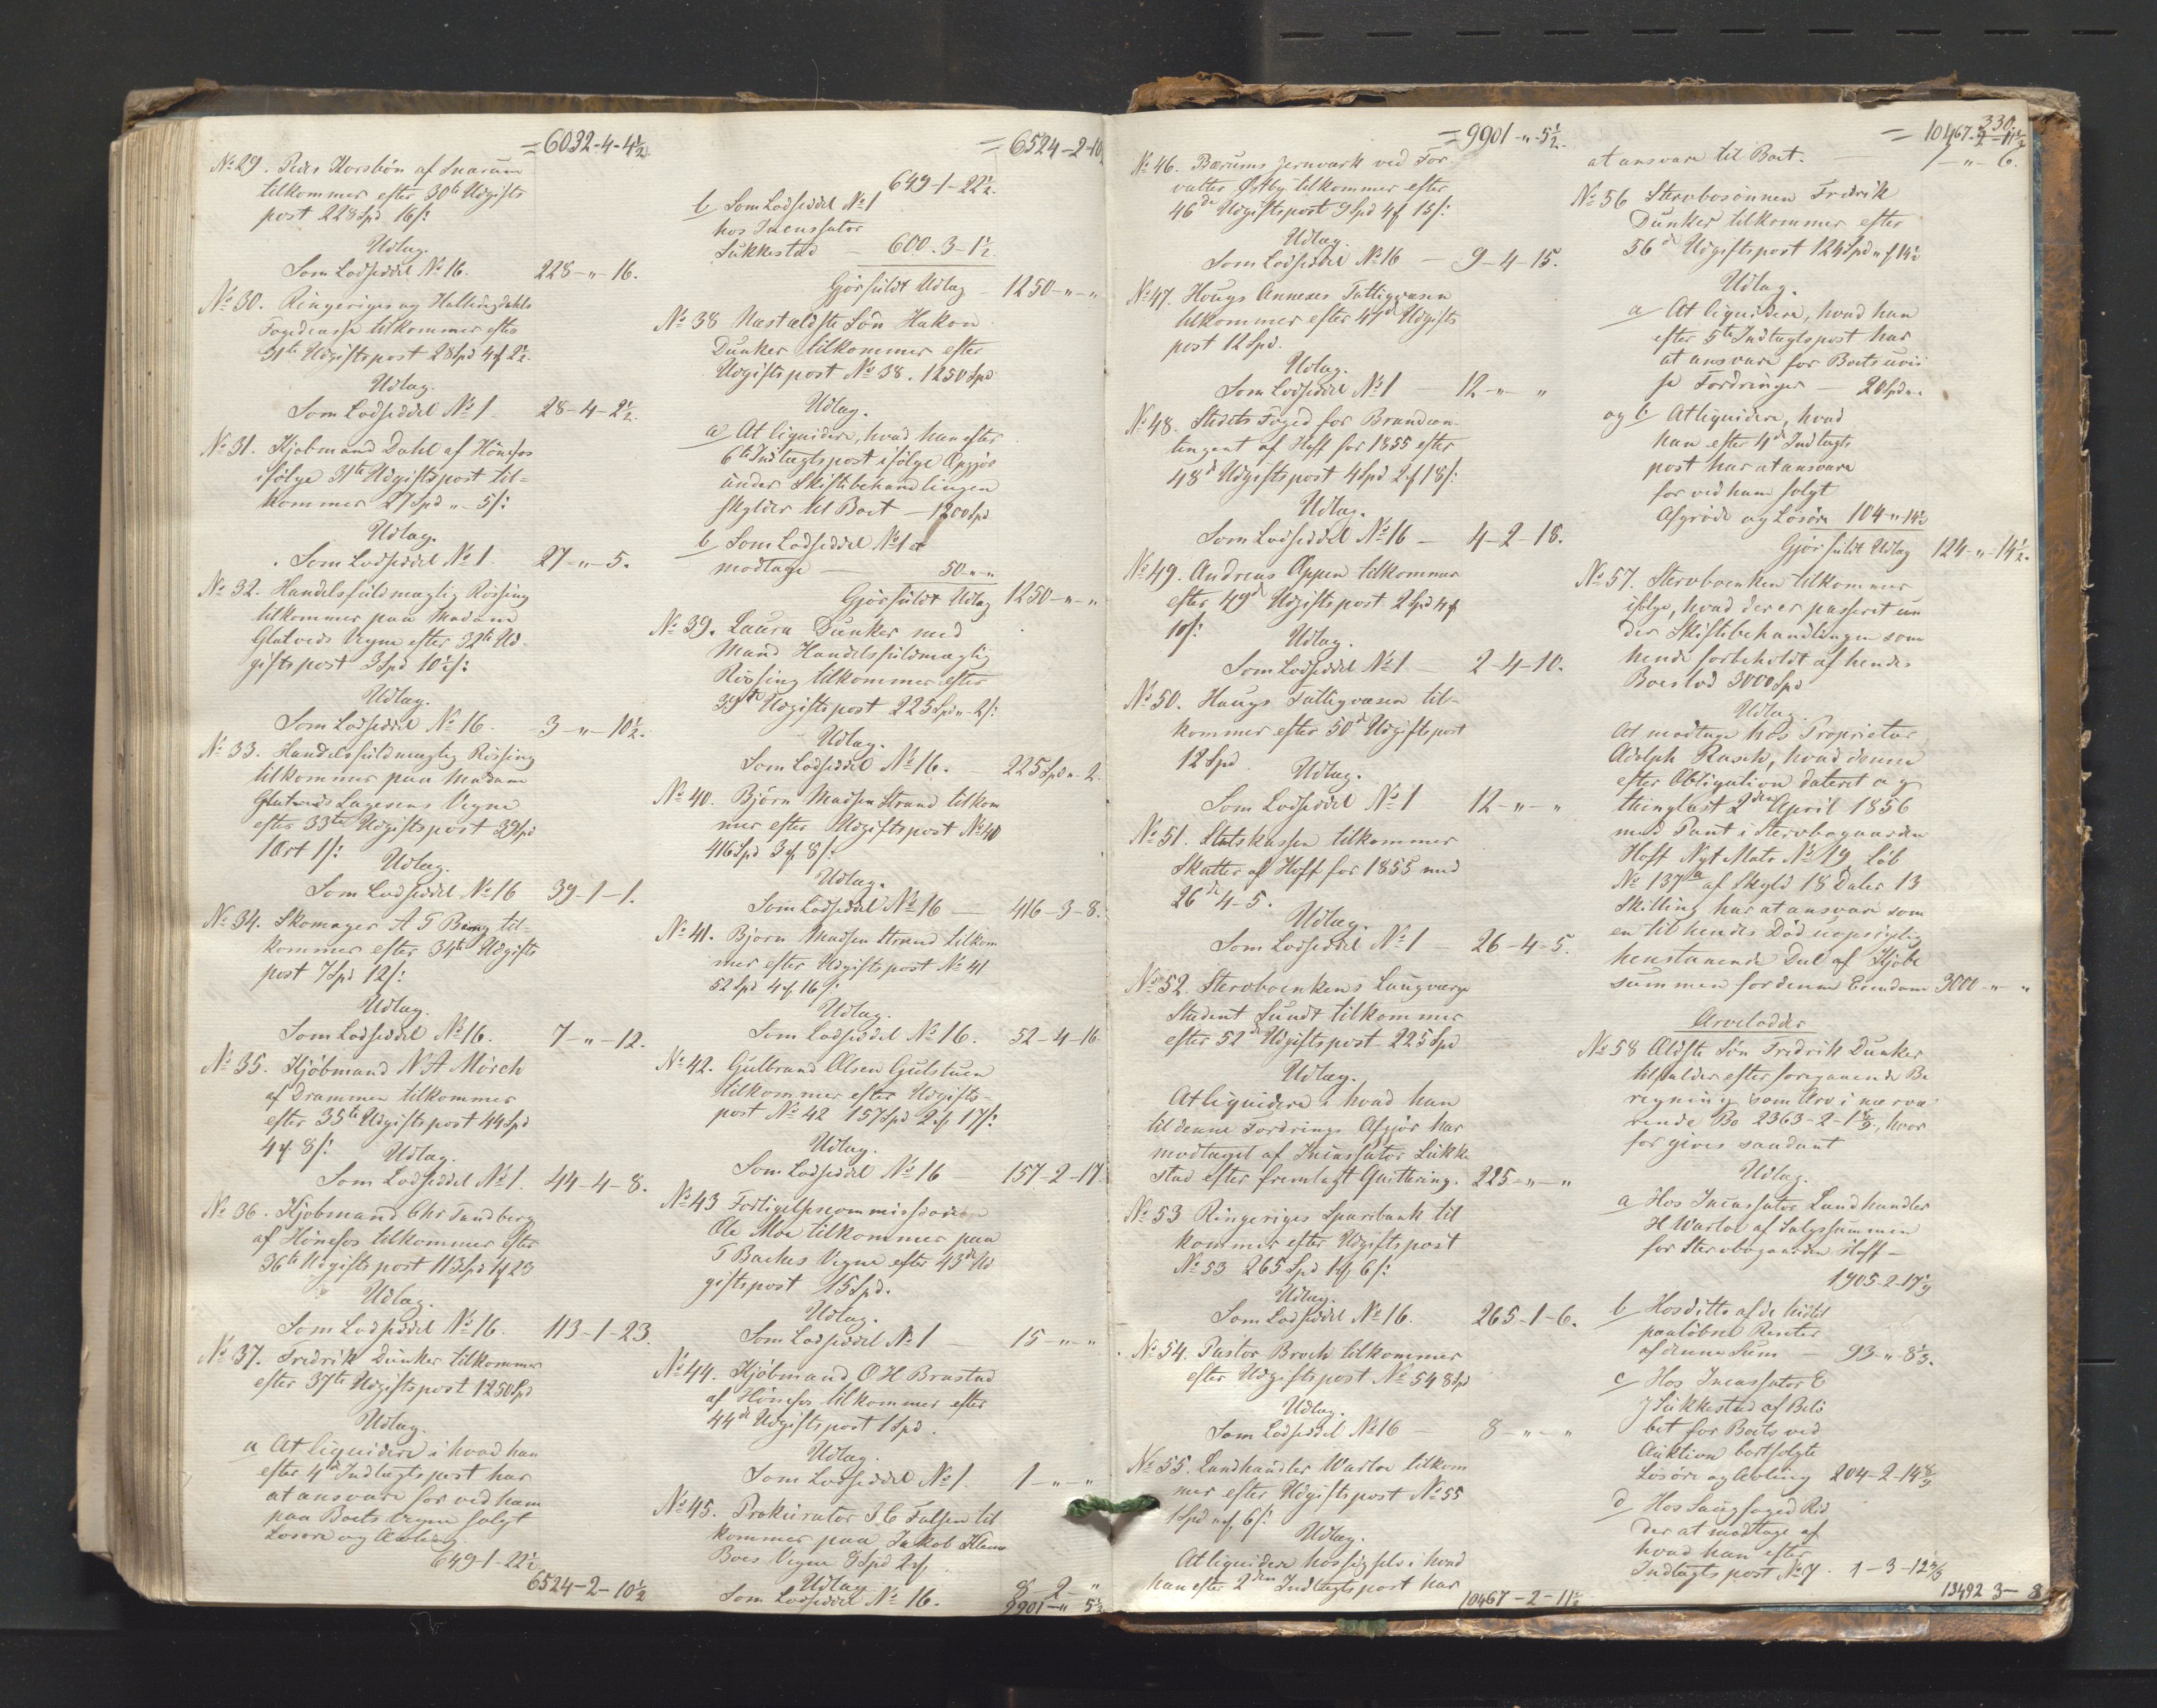 =6032-4-4½
№ 29. Peder Korsbøn af Snarum
tilkommer efter 30te Udgifts
post 228 Spd 16 s:
Udlag.
Som Lodseddel № 16. 228-"-16.
№ 30. Ringeriges og Hallingdahls
Fogedcasse tilkommer efter
31te Udgiftspost 28 Spd 4 f 2½.
Udlag.
Som Lodseddel № 1. 28-4-2½.
№ 31. Kjøbmand Dahl af Hönefos
ifölge 31te Udgiftspost til-
kommer 27 Spd " 5 s:
Udlag.
Som Lodseddel № 1. 27-"-5.
№ 32. Handelsfuldmægtig Rössing
tilkommer paa Madame
Glatveds Vegne efter 32te Ud-
giftspost 3 Spd 10½ s:
Udlag.
Som Lodseddel № 16. 3-"-10½.
№ 33. Handelsfuldmægtig Rössing
tilkommer paa Madame
Lagesens Vegne
efter 33te Udgiftspost 39 Spd
1 Ort 1 s:
Udlag.
Som Lodseddel № 16 39-1-1.
№ 34. Skomager A T Bang til-
kommer efter 34te Udgifts
post 7 Spd 12 s:
Udlag.
Som Lodseddel № 16. 7-"-12.
№ 35. Kjöbmand N A Mörch
af Drammen tilkommer
efter 35te Udgiftspost 44 Spd
4 f 8 s:
Udlag.
Som Lodseddel № 1. 44-4-8.
№ 36. Kjöbmand Chr Tandberg
af Hönefos tilkommer efter
36te Udgiftspost 113 Spd 1 f 23
Udlag.
Som Lodseddel № 16. 113-1-23.
№ 37. Fredrik Dunker tilkommer
efter 37te Udgiftspost 1250 Spd
Udlag.
a At liquidere i hvad han
efter 4de Indtægtspost har
at ansvare for ved ham
paa Boets Vegne solgt
Lösöre og Avling.
649-1-22½
6524-2-10½
=6524-2-10
649-1-22½.
b Som Lodseddel № 1
hos Incassator
Lukkestad — 600-3-1½.
Gjör fuldt Udlag — 1250-"-"
№ 38 Næstældste Sön Hakon
Dunker tilkommer efter
Udgiftspost № 38. 1250 Spd
Udlag.
a At liquidere, hvad han efter
6te Indtægtspost ifölge Opgjör
under Skiftebehandlingen
skylder til Boet — 1200 Spd
b Som Lodseddel № 1 at
modtage — 50-"-"
Gjör fuldt Udlag 1250-"-"
№ 39. Laura Dunker med
Mand Handelsfuldmægtig
Rössing tilkommer efter
39te Udgiftspost 225 Spd " 2 s:
Udlag.
Som Lodseddel № 16. — 225 Spd " 2.
№ 40. Björn Madsen Strand tilkom
mer efter Udgiftspost № 40
416 Spd 3 f 8 s:
Udlag.
Som Lodseddel № 16 — 416-3-8.
№ 41. Bjorn Madsen Strand tilkom
mer efter Udgiftspost № 41
52 Spd 4 f 16 s:
Udlag.
Som Lodseddel № 16. 52-4-16
№ 42. Gulbrand Olsen Gulstuen
tilkommer efter Udgifts-
post № 42 157 Spd 2 f 17 s:
Udlag.
Som Lodseddel № 16 — 157-2-17.
№ 43 Forligelsescommissairen
Ole Moe tilkommer paa
T Backes Vegne efter 43de Ud
giftspost 15 Spd.
Udlag.
Som Lodseddel № 1 — 15-"-"
№ 44. Kjöbmand O H Brastad
af Hönefos tilkommer efter
44de Udgiftspost 1 Spd.
Udlag.
Som Lodseddel № 1. 1-"-"
№ 45. Prokurator I C Falsen til
kommer paa Jakob
Boes Vegne 8 Spd 2 f
Udlag
Som Lodseddel № 16. 8-2-"
9901-"-5½
=9901-"-5½.
№ 46. Bærums Jernværk ved For
valter Østby tilkommer efter
46de Udgiftspost 9 Spd 4 f 15 s:
Udlag.
Som Lodseddel № 16 — 9-4-15.
№ 47. Hougs Annexes Fattigvæsen
tilkommer efter 47de Udgifts
post 12 Spd.
Udlag.
Som Lodseddel № 1 — 12-"-"
№ 48. Stedets Foged for Brandcon-
tingent af Hoff for 1855 efter
48de Udgiftspost 4 Spd 2 f 18 s:
Udlag.
Som Lodseddel № 16 — 4-2-18.
№ 49. Andreas Oppen tilkommer
efter 49de Udgiftspost 2 Spd 4 f
10 s:
Udlag.
Som Lodseddel № 1 — 2-4-10.
№ 50. Hougs Fattigvæsen til-
kommer efter 50de Udgiftspost
12 Spd
Udlag.
Som Lodseddel № 1 12-"-"
№ 51. Statskassen tilkommer
Skatter af Hoff for 1855 med
26-4-5.
Udlag.
Som Lodseddel № 1 — 26-4-5.
№ 52. Stervboenkens Laugværge
Student Sundt tilkommer
efter 52de Udgiftspost 225 Spd
Udlag.
At liquidere i hvad han
til denne Fordrings Afgjör har
modtaget af Incassator Lukke
stad efter fremlagt Quittering. 225-"-"
№ 53 Ringeriges Sparebank til
kommer efter Udgiftspost
№ 53 265 Spd 1 f 6 s:
Udlag.
Som Lodseddel № 16. 265-1-6.
№ 54. Pastor Broch tilkommer
efter Udgiftspost № 54 8 Spd
Udlag.
Som Lodseddel № 16 — 8-"-"
№ 55. Landhandler Warloe tilkom
mer efter Udgiftspost № 55
1 Spd " f 6 s:
Udlag.
At liquidere hos sig selv i hvad
han efter 2den Indtægtspost har
10467-2-11½
330.
= 10467-2-11½
at ansvare til Boet. — 1-"-6.
№ 56 Stervbosönnen Fredrik
Dunker tilkommer efter
56de Udgiftspost 124 Spd " f 14½
Udlag.
a At liquidere, hvad han
efter 5te Indtægtspost har
at ansvare for Boets uvis
se Fordringer — 20 Spd "-"
og b At liquidere, hvad
han efter 4de Indtægts
post har at ansvare
for ved ham solgt
Afgröde og Lösöre 104-"-14½
Gjör fuldt Udlag 124-"-14½.
№ 57. Stervboenken tilkommer
ifölge, hvad der er passeret un
der Skiftebehandlingen som
hende forbeholdt af hendes
Boeslod 3000 Spd
Udlag.
At modtage hos Proprietær
Adolph Rasch, hvad denne
efter Obligation dateret og
thinglæst 2den April 1856
med Pant i Stervbogaarden
Hoff Nyt Matr № 19, Löb
№ 137a af Skyld 18 Daler 13
Skilling har at ansvare som
en til hendes Död uopsigelig
henstaaende Deel af Kjöbe
summen for denne Eiendom 3000-"-"
Arvelodder
№ 58 Ældste Sön Fredrik Dunker
tilfalder efter foregaaende Be
regning som Arv i nærvæ
rende Bo 2363-2-1, hvor
for gives saadant
Udlag.
a Hos Incassator Landhandler
H Warloe af Salgssummen
for Stervbogaarden Hoff —
1905-2-17
b Hos ditto af de hidtil
paalöbne Renter
af denne Sum — 93-"-8⅓.
c Hos Incassator E
J Lukkestad af Belö
bet for Boets ved
Auktion bortsolgte
Lösöre og Avling 204-2-14
d Hos Laugfoged Rid
der at modtage af
hvad han efter
Indtægtspost № 7. 1-3-12
13492-3-8